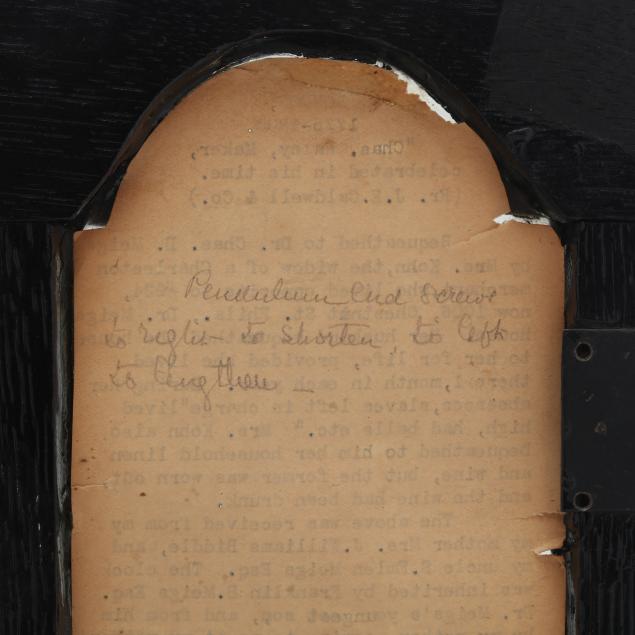 Pendulum End Screw
to right to shorten to left
to lengthen
"Chas. Maker,
celebrated in his time.
(Fr. J.E.Caldwell & Co.)
Bequeathed to Dr. Chas. D. Meigs
by Mrs. Kohn,the widow of a Charleston
now Chestnut St. Phila. Dr. Meigs
to her for life, provided she lived
there 1 month in each
absences,slaves left in charge"lived
high, had balls etc." Mrs. Kohn also
bequeathed to him her household linen
and wine, but the former was worn out
and the wine had been drunk.
The above was received from my
my mother Mrs. J.Williams Biddle, and
my uncle S.Emlen Meigs Esq. The clock
was inherited by Franklin B.Meigs Esq.
Dr. Meigs's youngest son, and from him